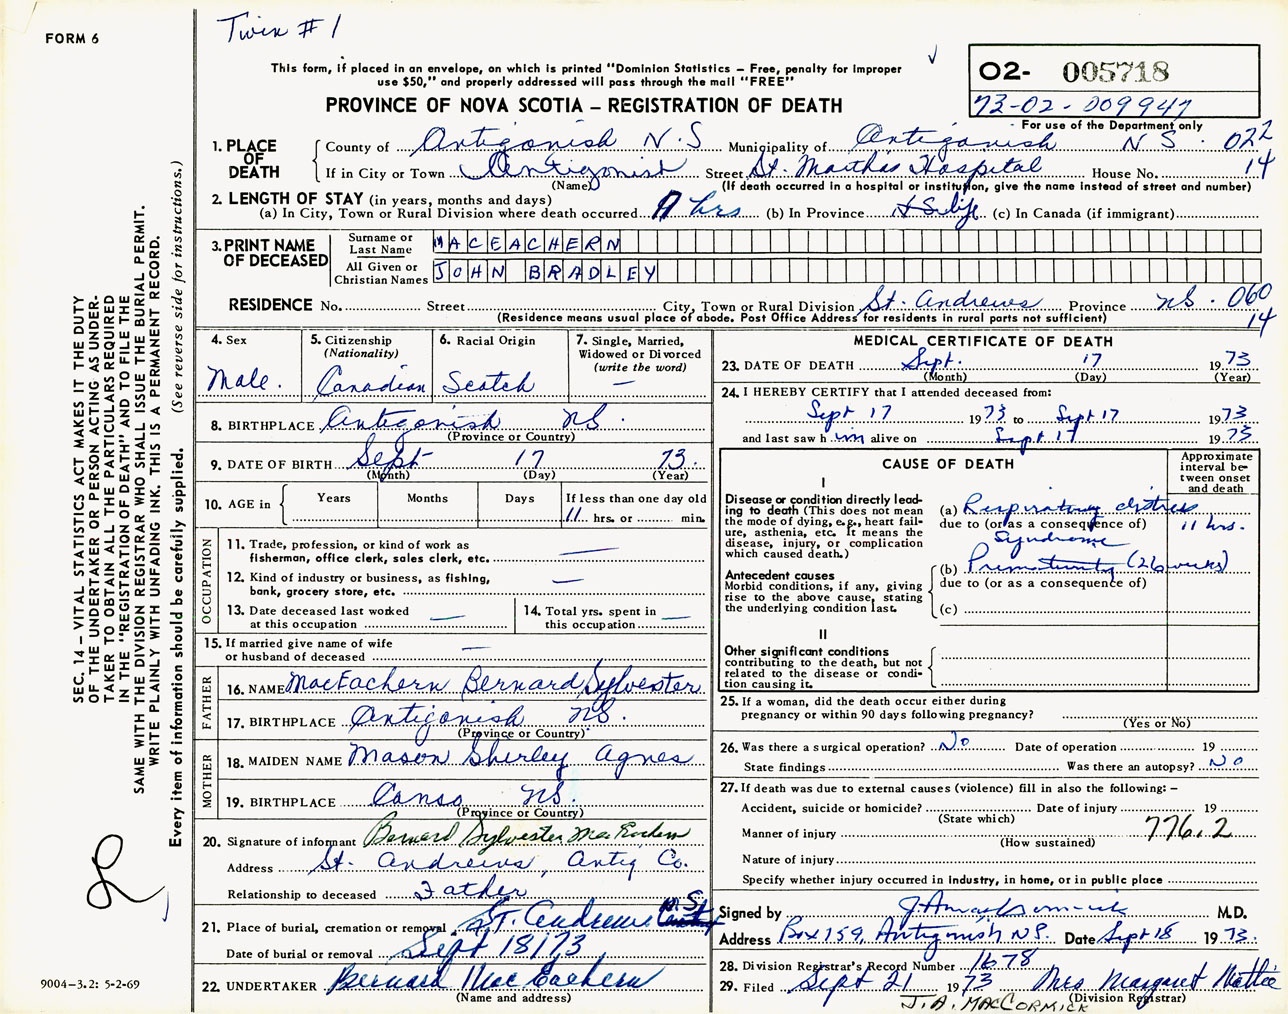 FORM 6
Twin # 1
This form, if placed in an envelope, on which is printed "Dominion Statistics – Free, penalty for improper
use $50," and properly addressed will pass through the mail "FREE"
02- 005718
73-02-009947
PROVINCE OF NOVA SCOTIA – REGISTRATION OF DEATH
For use of the Department only
1. PLACE OF DEATH
County of Antigonish N.S Municipality of Antigonish N S. 022
If in City or Town Antigonish Street St. Marthas Hospital House No. 14
(Name) (If death occurred in a hospital or institution, give the name instead of street and number)
2. LENGTH OF STAY (in years, months and days)
(a) In City, Town or Rural Division where death occurred 11 hrs (b) In Province (c) In Canada (if immigrant)
3. PRINT NAME OF DECEASED
Surname or Last Name MACEACHERN
All Given or Christian Names JOHN BRADLEY
RESIDENCE No. Street City, Town or Rural Division St. Andrews Province NS. 060
(Residence means usual place of abode. Post Office Address for residents in rural parts not sufficient) 14
4. Sex
Male.
5. Citizenship
(Nationality)
Canadian
6. Racial Origin
Scotch
7. Single, Married,
Widowed or Divorced
(write the word)
—
8. BIRTHPLACE Antigonish NS.
(Province or Country)
9. DATE OF BIRTH Sept 17 73.
(Month) (Day) (Year)
10. AGE in
Years Months Days If less than one day old
11 hrs. or min.
OCCUPATION
11. Trade, profession, or kind of work as
fisherman, office clerk, sales clerk, etc. —
12. Kind of industry or business, as fishing,
bank, grocery store, etc. —
13. Date deceased last worked
at this occupation —
14. Total yrs. spent in
this occupation —
15. If married give name of wife
or husband of deceased —
FATHER
16. NAME MacEachern Bernard Sylvester
17. BIRTHPLACE Antigonish NS.
(Province or Country)
MOTHER
18. MAIDEN NAME Mason Shirley Agnes
19. BIRTHPLACE Canso NS.
(Province or Country)
20. Signature of informant Bernard Sylvester MacEachern
Address St. Andrews, Antig Co.
Relationship to deceased Father
21. Place of burial, cremation or removal St. Andrews N.S.
Date of burial or removal Sept 18/73
22. UNDERTAKER Bernard MacEachern
(Name and address)
MEDICAL CERTIFICATE OF DEATH
23. DATE OF DEATH Sept. 17 1973
(Month) (Day) (Year)
24. I HEREBY CERTIFY that I attended deceased from:
Sept 17 1973 to Sept 17 1973
and last saw him alive on Sept 17 1973
CAUSE OF DEATH
Approximate
interval be-
tween onset
and death
I
Disease or condition directly lead-
ing to death (This does not mean
the mode of dying, e.g., heart fail-
ure, asthenia, etc. It means the
disease, injury, or complication
which caused death.)
(a) Respiratory distress
due to (or as a consequence of) 11 hrs.
Syndrome
Antecedent causes
Morbid conditions, if any, giving
rise to the above cause, stating
the underlying condition last.
(b) Prematurity (26 weeks)
due to (or as a consequence of)
(c)
II
Other significant conditions
contributing to the death, but not
related to the disease or condi-
tion causing it.
25. If a woman, did the death occur either during
pregnancy or within 90 days following pregnancy?
(Yes or No)
26. Was there a surgical operation? No Date of operation 19
State findings Was there an autopsy? No
27. If death was due to external causes (violence) fill in also the following: –
Accident, suicide or homicide? Date of injury 19
(State which)
Manner of injury 776.2
(How sustained)
Nature of injury
Specify whether injury occurred in industry, in home, or in public place
Signed by M.D.
Address Box 159, Antigonish NS. Date Sept 18 1973.
28. Division Registrar's Record Number 1678
29. Filed Sept 21 1973 Mrs Margaret Mattie
(Division Registrar)
J.A. MACCORMICK
SEC. 14 – VITAL STATISTICS ACT MAKES IT THE DUTY
OF THE UNDERTAKER OR PERSON ACTING AS UNDER-
TAKER TO OBTAIN ALL THE PARTICULARS REQUIRED
IN THE "REGISTRATION OF DEATH" AND TO FILE THE
SAME WITH THE DIVISION REGISTRAR WHO SHALL ISSUE THE BURIAL PERMIT.
WRITE PLAINLY WITH UNFADING INK. THIS IS A PERMANENT RECORD.
Every item of information should be carefully supplied. (See reverse side for instructions.)
9004-3.2: 5-2-69